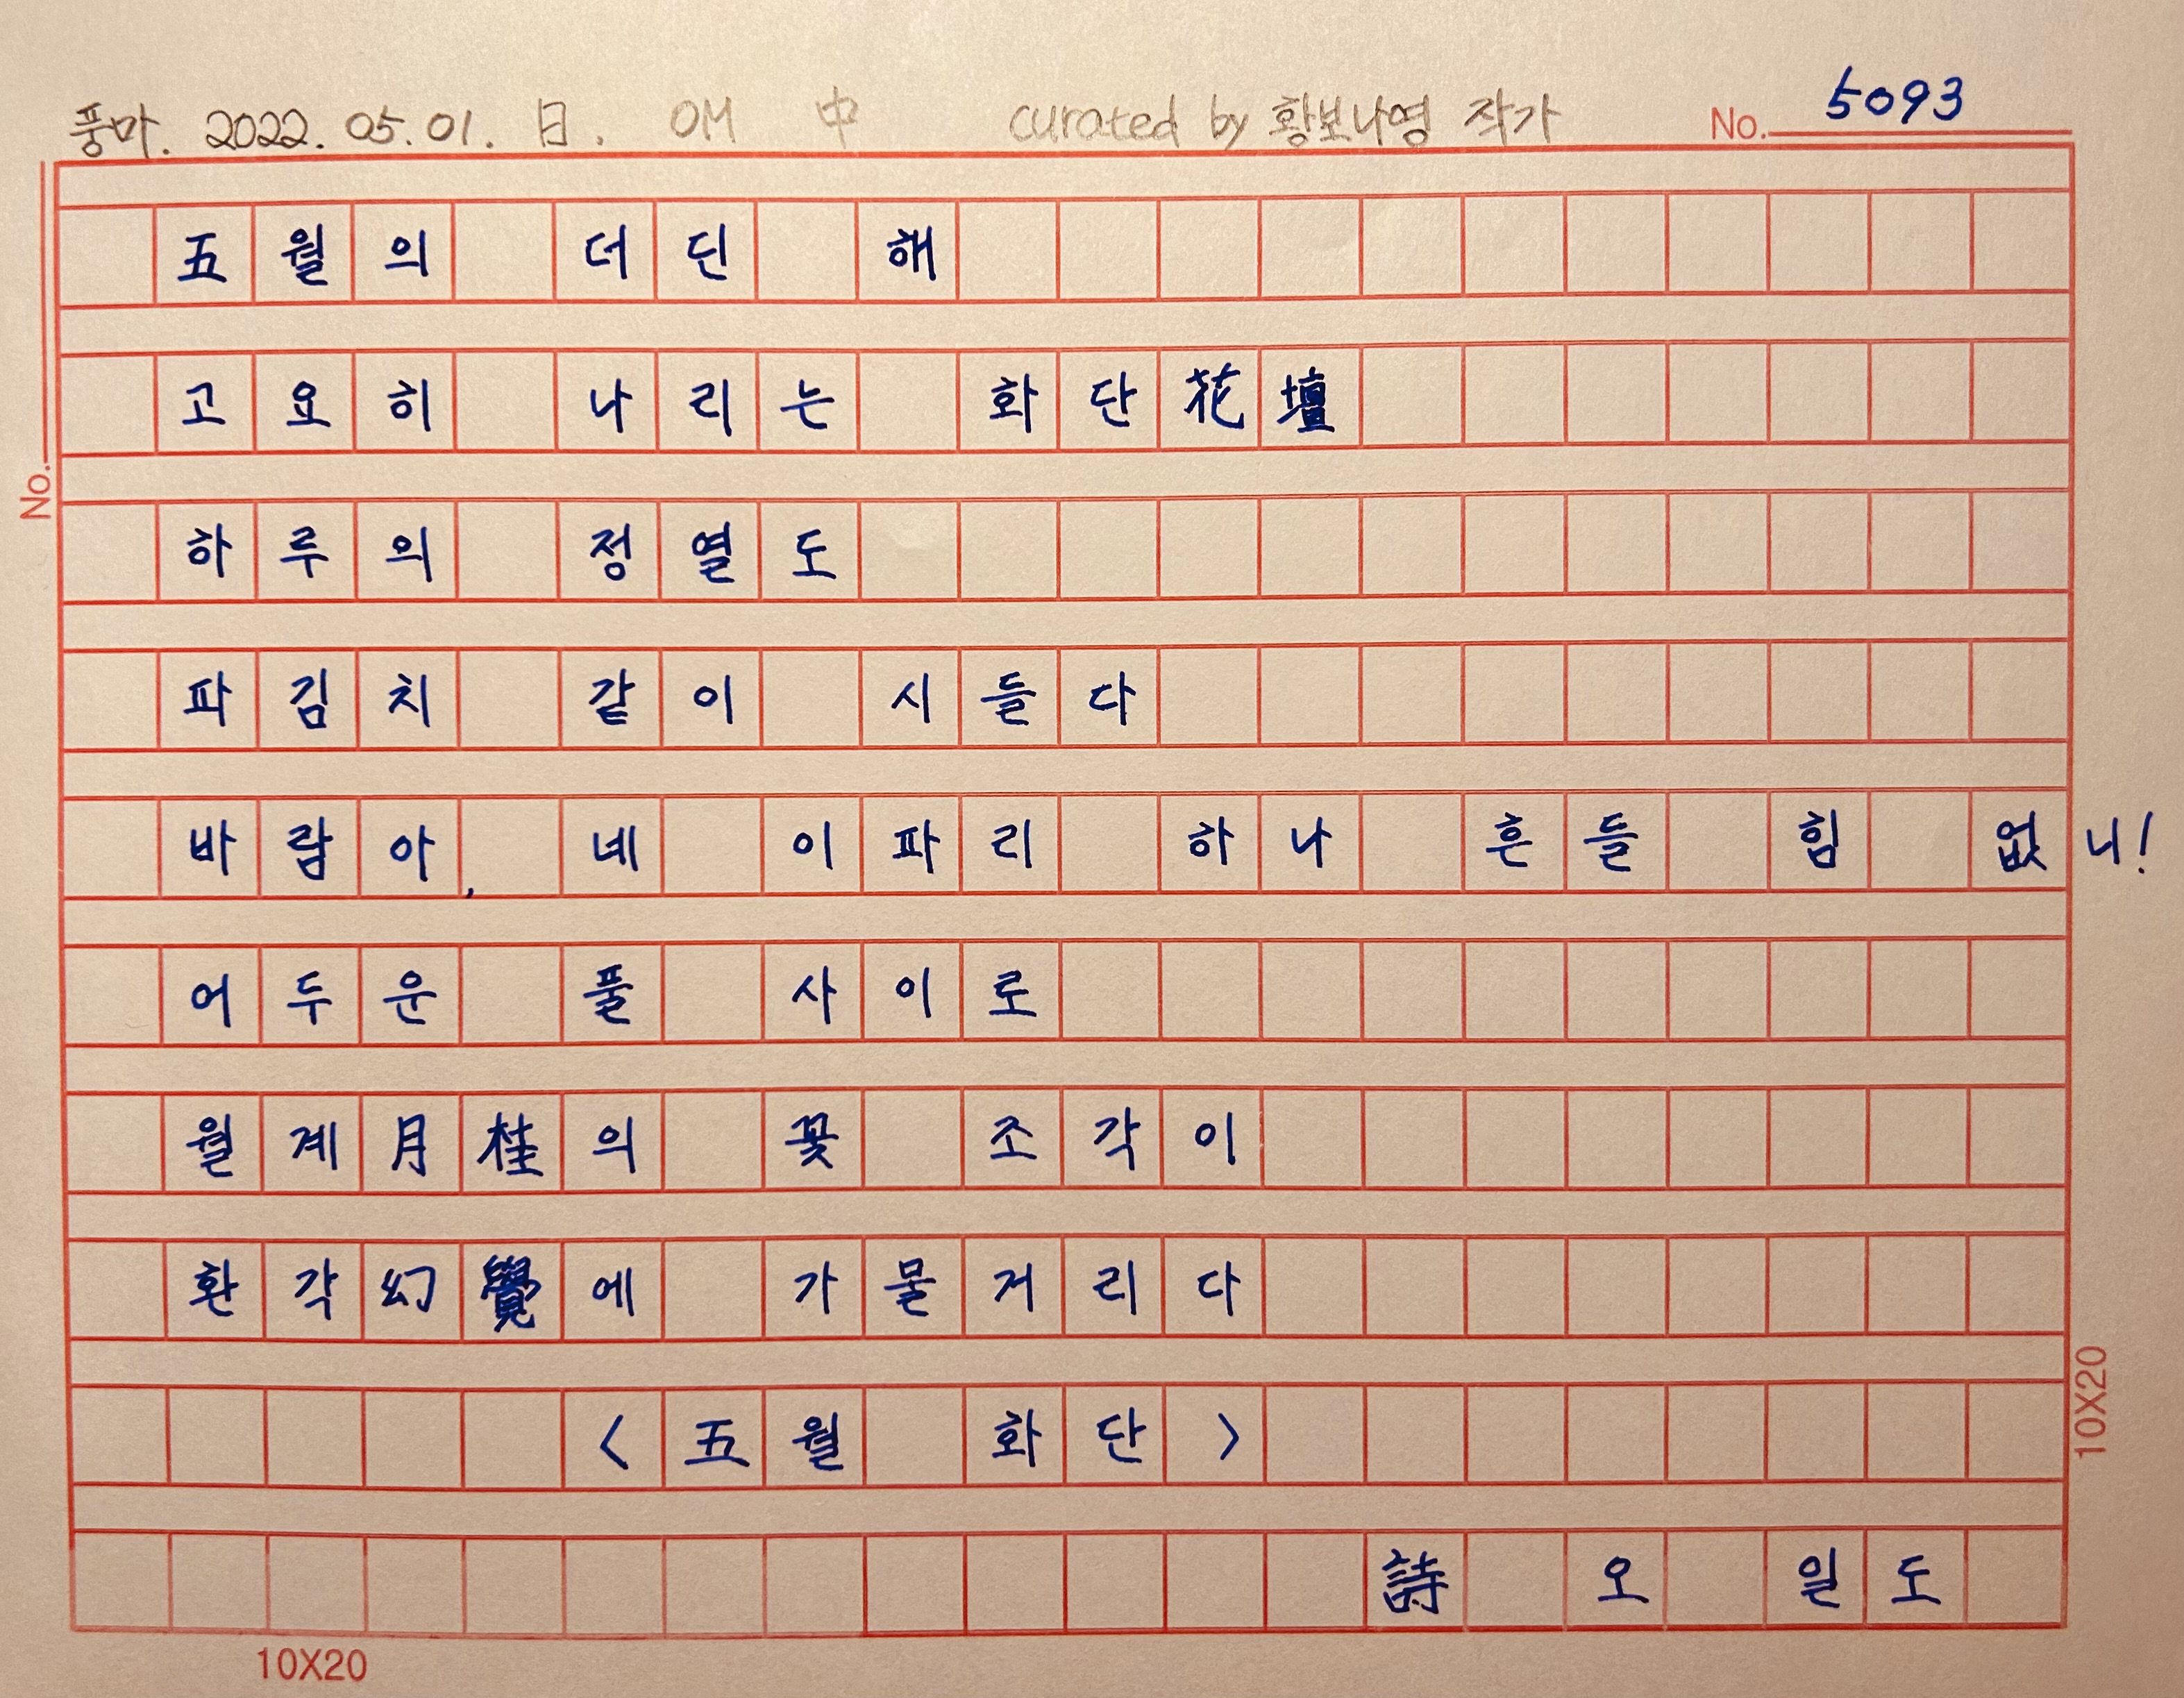 풍마. 2022. 05. 01. 日. OM 中 curated by 황보나영 작가 No. 5093
No.
五월의 더딘 해
고요히 나리는 화단花壇
하루의 정열도
파김치 같이 시들다
바람아, 네 이파리 하나 흔들 힘 없니!
어두운 풀 사이로
월계月桂의 꽃 조각이
환각幻覺에 가물거리다
<五월 화단>
詩 오 일도
10X20
10X20